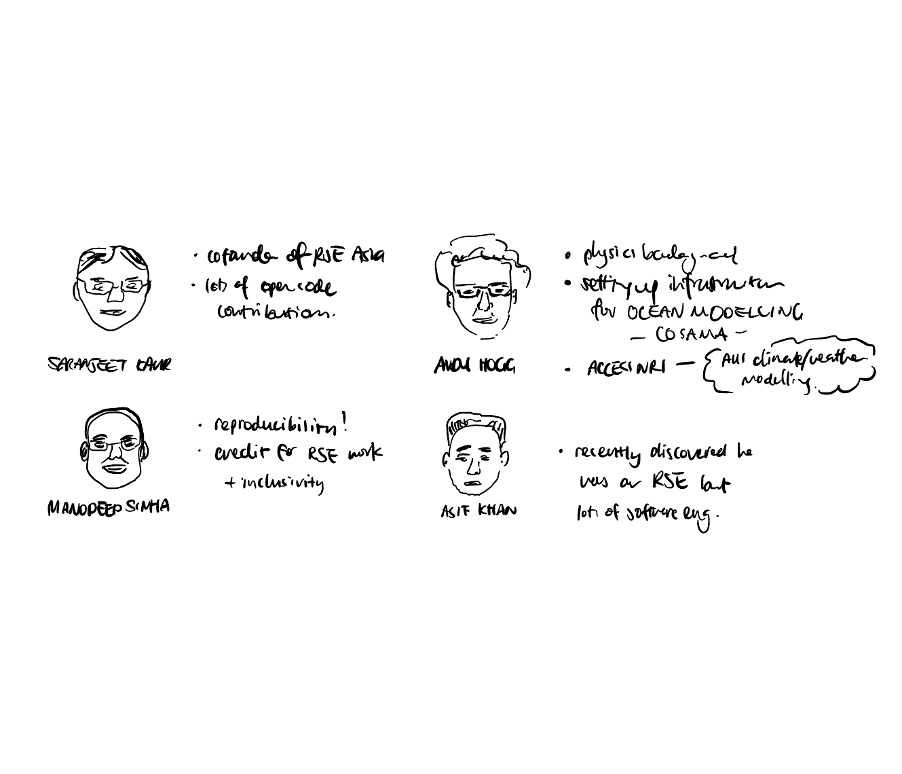 · cofounder of RSE Asia
· lots of open code
contributions.
SARANJEET KAUR
· physics background
· setting up infrastructure
for OCEAN MODELLING
— COSIMA —
· ACCESS NRI — AUS climate/weather
modelling.
ANDY HOGG
· reproducibility!
· credit for RSE work
+ inclusivity
MANODEEP SINHA
· recently discovered he
was an RSE but
lots of software eng.
ASIF KHAN